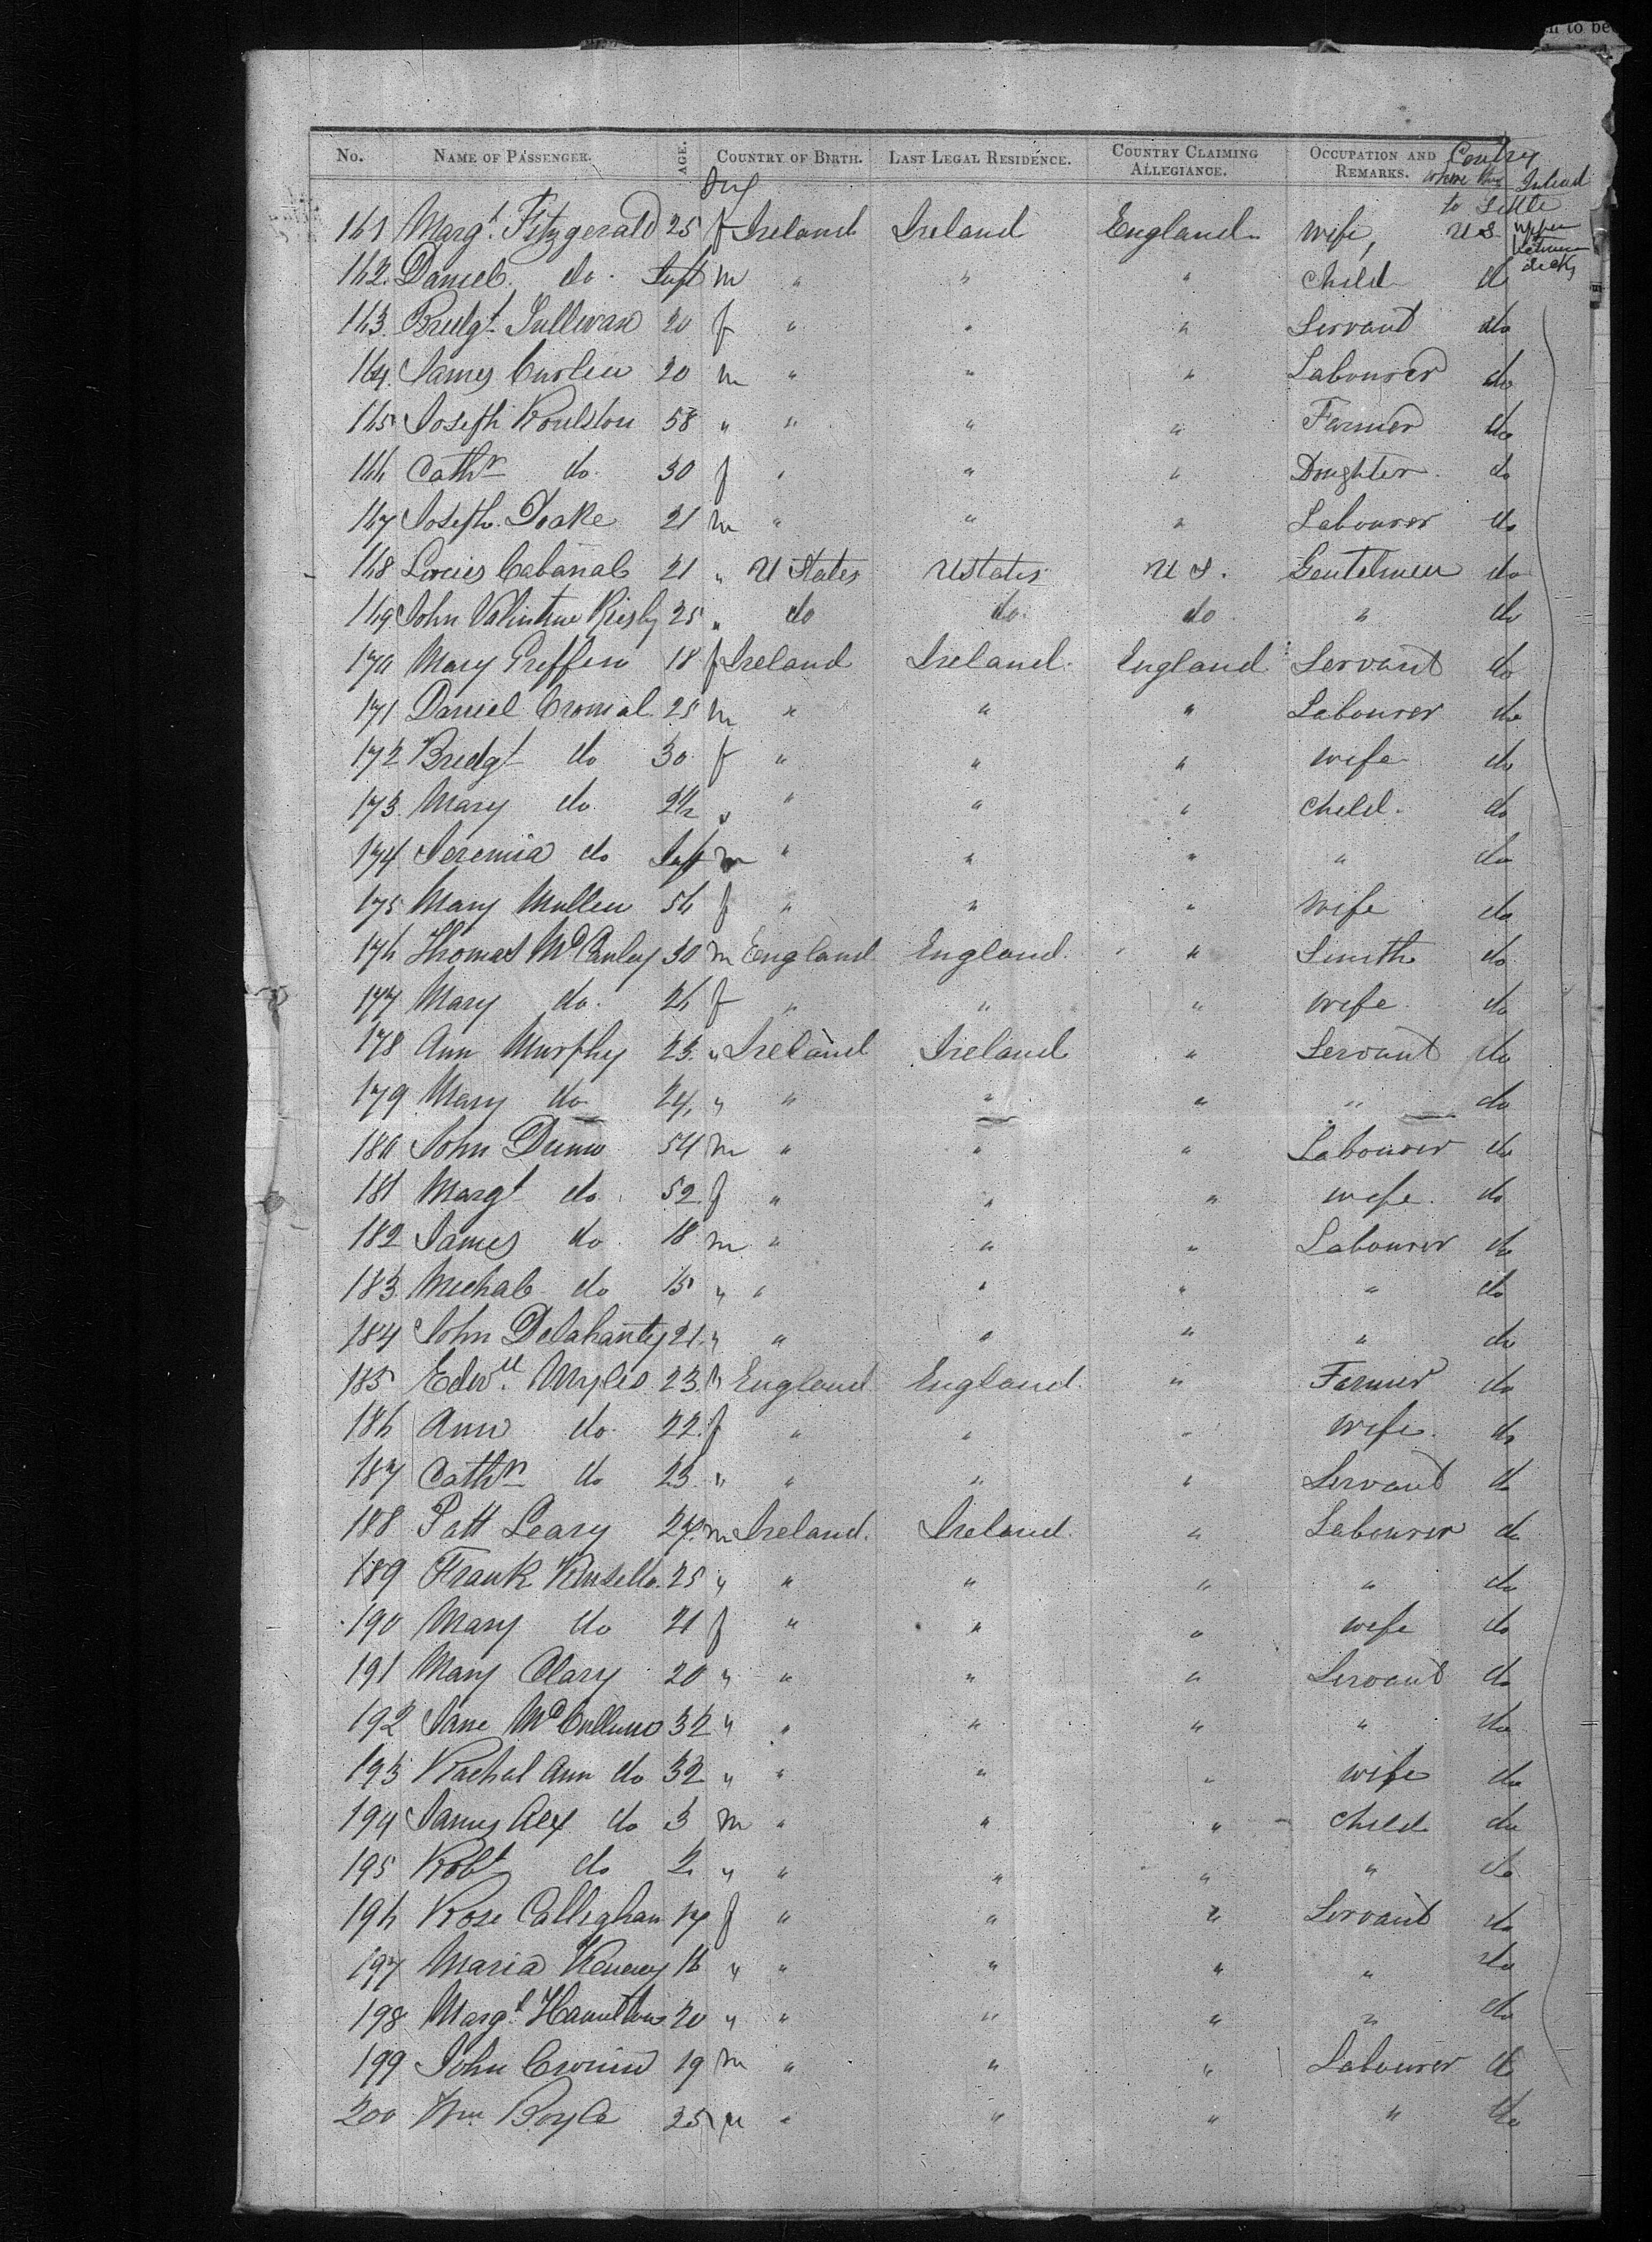 n to be
No. NAME OF PASSENGER. AGE. COUNTRY OF BIRTH. LAST LEGAL RESIDENCE. COUNTRY CLAIMING ALLEGIANCE. OCCUPATION AND REMARKS. Contry where they Intend to Settle
161 Margt. Fitzgerald 25 f Ireland Ireland England Wife, U S. upper between decks
162. Daniel do. Inft m " " " Child do
163. Bridgt Sullivan 20 f " " " Servant do
164. James 20 m " " " Labourer do
165 Joseph Roulston 58 " " " " Farmer do
166 Cathn do. 30 f " " " Doughter. do
167 Joseph Doake 21 m " " " Labourer do
168 Louies 21 " U States U States U S. Gentelmen do
169 John Valintine 25 " do do. do " do
170 Mary Griffin 18 f Ireland Ireland. England Servant do
171 Daniel 25 m " " " Labourer do
172 Bridgt do 30 f " " " wife do
173. Mary do 2½ " " " " Child. do
174 Jeremia do Inft m " " " " do
175 Mary Mullen 56 f " " " Wife do
176 Thomas McCauley 30 m England England. " Smith do
177 Mary do. 26 f " " " wife. do
178 Ann Murphy 23. " Ireland Ireland " Servant do
179 Mary do 24, " " " " " do
180 John Dunn 54 m " " " Labourer do
181 Margt do. 52. f " " " wife. do
182 James do. 18 m " " " Labourer do
183. Michal do 15 " " " " " do
184 John Delahanty 21. " " " " " do
185 Edwd. Myles 23. " England England. " Farmer do
186 Ann do. 22. f " " " Wife. do
187 Cathn do 23. " " " " Servant do
188 Patt Leary 27. m Ireland. Ireland. " Labourer do
189 Frank Kinsella. 25 " " " " " do
190 Mary do 21 f " " " wife do
191 Mary Clary 20 " " " " Servant do
192 Jane McCullum 32 " " " " " do
193 Rachel Ann do 32 " " " " wife do
194 James Alex do 3 m " " " Child do
195 Robt do 2 " " " " " do
196 Rose Calleghan 17 f " " " Servant do
197 Maria 16 " " " " " do
198 Margt. Hamilton 20 " " " " " do
199 John Cronin 19 m " " " Labourer do
200 Wm Boyle 25 m " " " " do